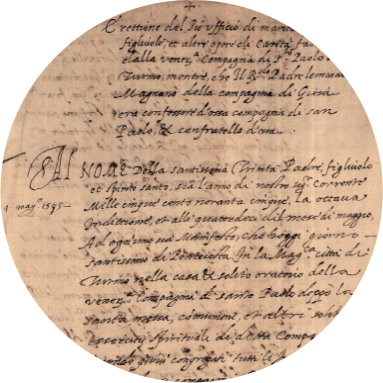 Erettione del Pio ufficio di maritar
figliuole, et altre opere di Carità fa
dalla vener.a Compagnia di S.to Paolo
Turino, mentre, che Il R.do Padre
Magnano della compagnia di Giesù
era confessore d'essa compagnia di san
Paolo, & confratello d'essa.
AL NOME Della santissima Trinita Padre, figliuolo
et spirito santo, sia l'anno di nostro sig.r Corrente
4 magg.o 1595
Mille cinque cento novanta cinque, la ottava
Indittione, et alli quatordeci dil mese di maggio,
Ad ogn'uno sia Manifesto, che hoggi giorno
santissimo di Pentecoste In la Mag.ca città di
Turino nella casa & solito oratorio della
vener.a Compagnia di santo Paolo doppò la
santa messa, comunione, et altri soliti
essercitij spirituali di detta Comp
congregati tutti li